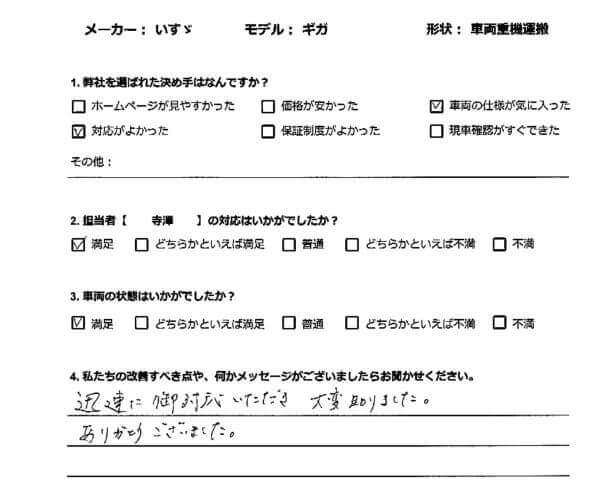 メーカー： いすゞ モデル： ギガ 形状： 車両重機運搬
1. 弊社を選ばれた決め手はなんですか？
☐ ホームページが見やすかった ☐ 価格が安かった ☑ 車両の仕様が気に入った
☑ 対応がよかった ☐ 保証制度がよかった ☐ 現車確認がすぐできた
その他：
2. 担当者【 寺澤 】の対応はいかがでしたか？
☑ 満足 ☐ どちらかといえば満足 ☐ 普通 ☐ どちらかといえば不満 ☐ 不満
3. 車両の状態はいかがでしたか？
☑ 満足 ☐ どちらかといえば満足 ☐ 普通 ☐ どちらかといえば不満 ☐ 不満
4. 私たちの改善すべき点や、何かメッセージがございましたらお聞かせください。
迅速に御対応いただき 大変助りました。
ありがとうございました。